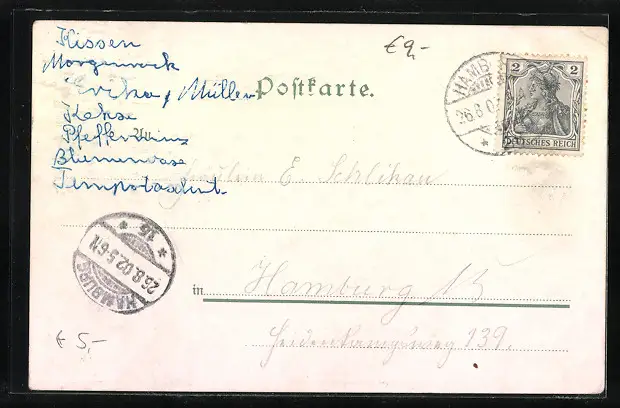 Kissen
Morgenrock
Erika, Müller
Kekse
Pfefferminz
Blumenvase
€ 9,-
Postkarte.
HAMB
26.8.02
2 2
DEUTSCHES REICH
Fräulein E. Schlihau
in Hamburg 13
139.
HAMBURG
26.8.02.5-6N
* 13 *
€ 5,-